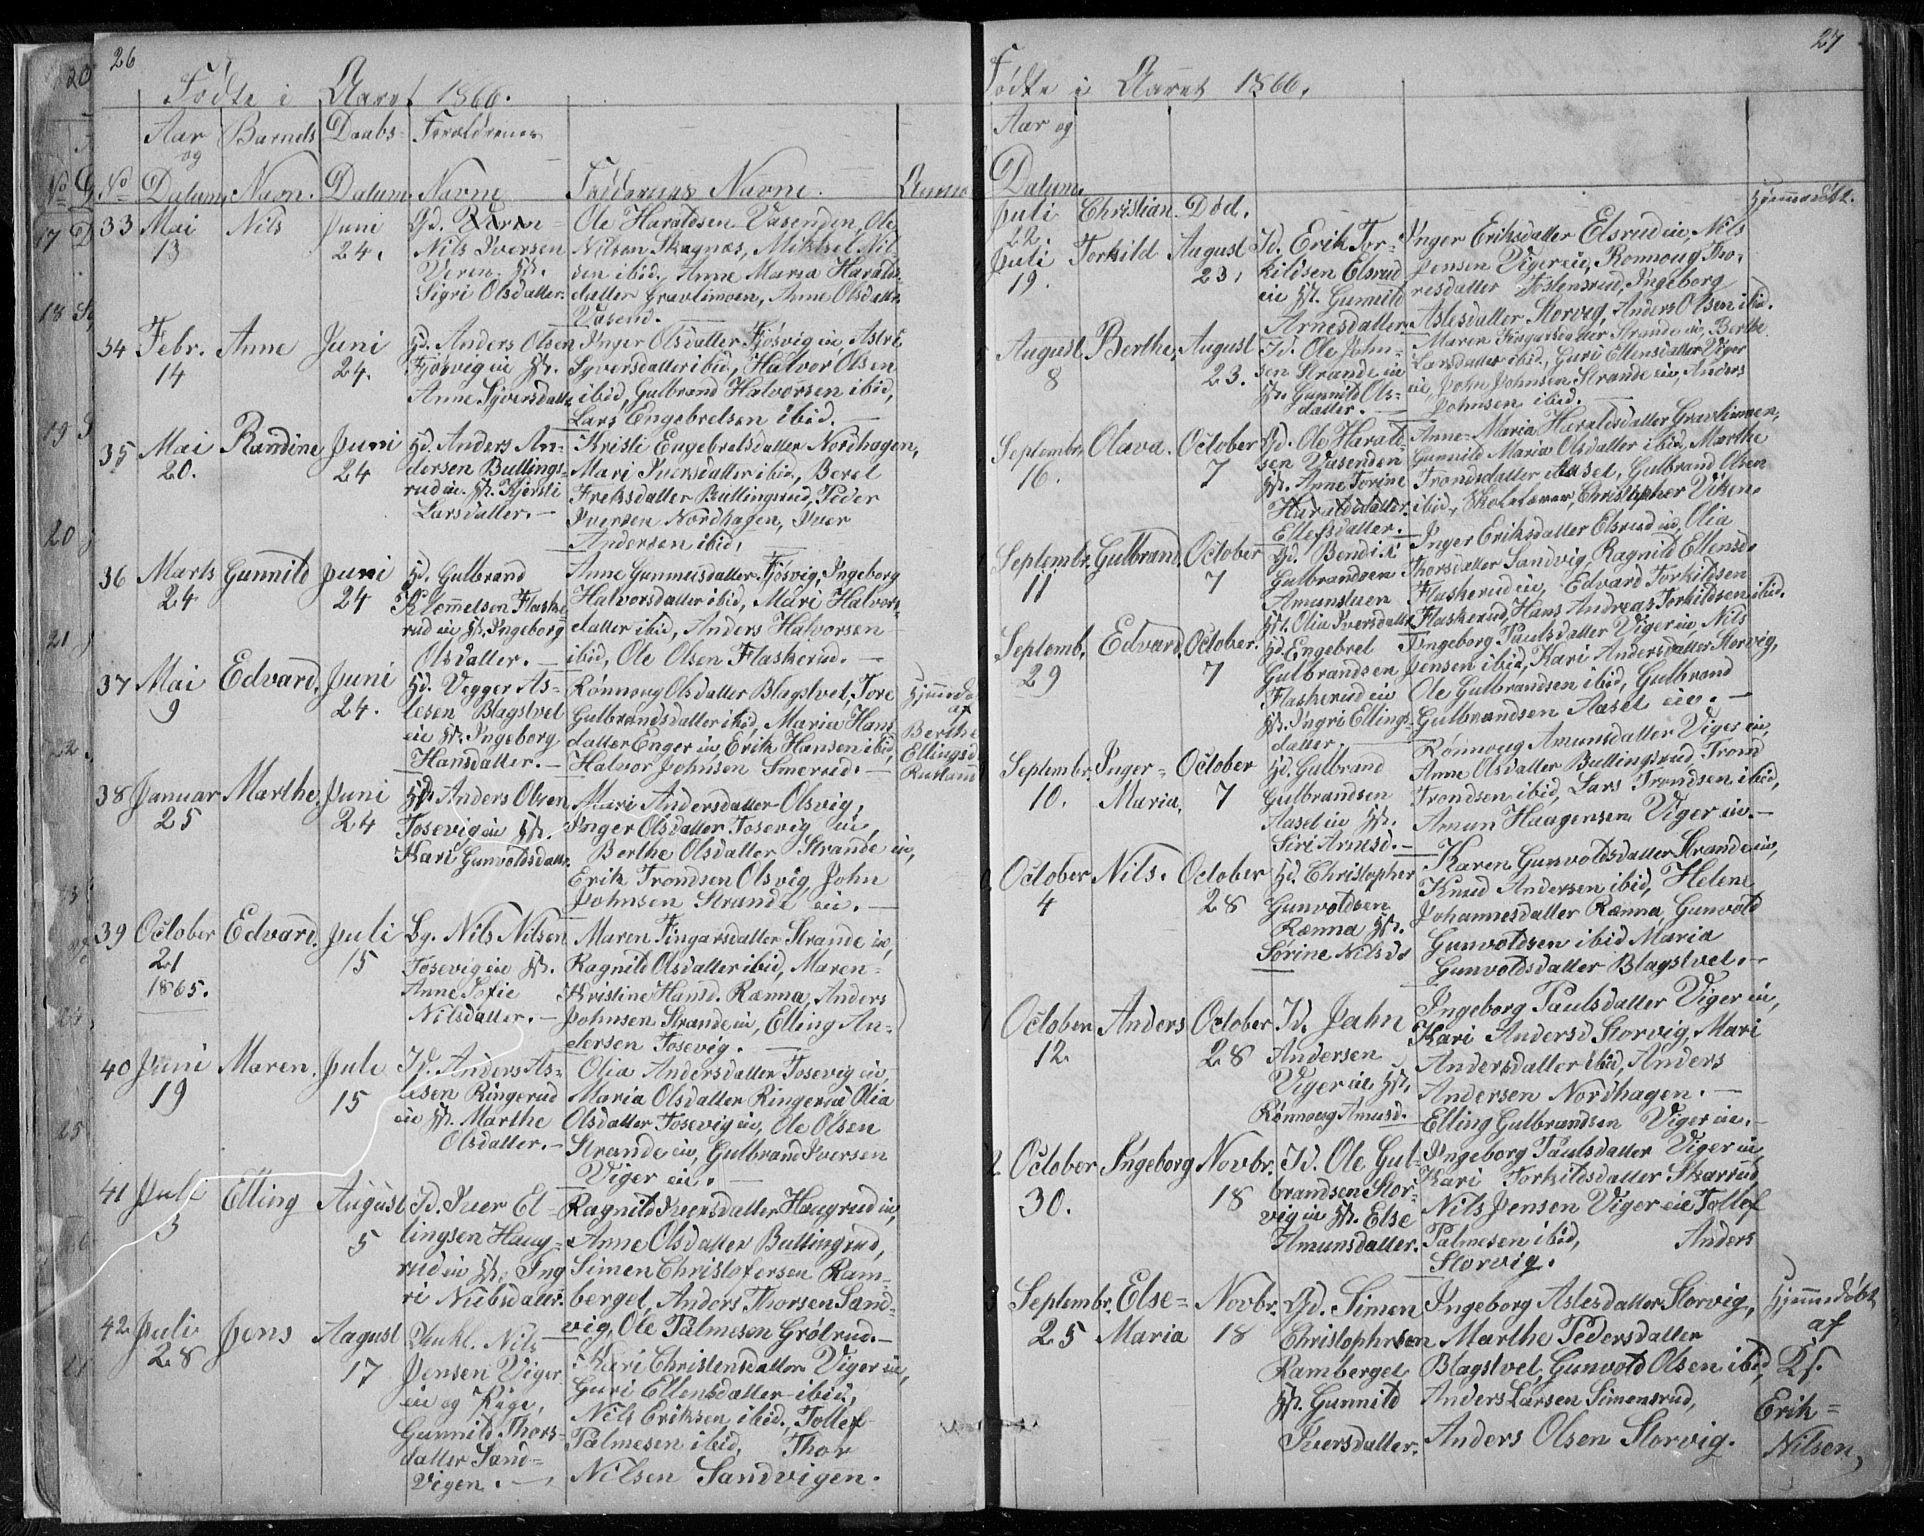 26
Fødte i Aaret 1866.
Aar og Barnets Daabs- Forældrenes
No Datum, Navn. Datum. Navne Faddernes Navne.
33 Mai 13 Nils Juni 24.
Nils Iversen
Sigri Olsdatter.
Ole Haraldsen Vasenden, Ole
Nilsen Skagnæs, Mikkel Nil-
sen ibid, Anne Maria Haralds-
datter Gravlimoen, Anne Olsdatter
Vasend.
34 Febr. 14 Anne Juni 24.
Anders Olsen
Fjösvig eie
Anne Syversdatter
Inger Olsdatter Fjösvig eie, Astri
Syversdatter ibid, Halvor Olsen
ibid, Gulbrand Halvorsen ibid,
Lars Engebretsen ibid.
35 Mai 20. Randine Juni 24
Anders An-
dersen Bullings-
rud eie. Kjersti
Larsdatter.
Kristi Engebretsdatter Nordhagen,
Mari Iversdatter ibid, Beret
Eriksdatter Bullingsrud, Peder
Iversen Nordhagen, Iver
Andersen ibid,
36 Marts 24 Gunnild Juni 24
Gulbrand
Klemmetsen Flaske-
rud eie Ingeborg
Olsdatter.
Anne Gunneisdatter Fjösvig, Ingeborg
Halvorsdatter ibid, Mari Halvors-
datter ibid, Anders Halvorsen
ibid, Ole Olsen Flaskerud.
37 Mai 9 Edvard, Juni 24.
Vegger As-
lesen Blagstvet
eie Ingeborg
Hansdatter.
Rønnoug Olsdatter Blagstvet, Tore
Gulbrandsdatter ibid, Maria Hans-
datter Enger eie Erik Hansen ibid,
Halvor Johnsen Smerud.
Hjemmedøbt
af
Berthe
Ellingsd.
Rustand
38 Januar 25 Marthe, Juni 24
Anders Olsen
Tosevig eie
Kari Gunvoldsdatter
Mari Andersdatter Olsvig,
Inger Olsdatter Tosevig eie,
Berthe Olsdatter Strande eie,
Erik Trondsen Olsvig, John
Johnsen Strande eie.
39 October 21 1865. Edvard. Juli 15
Nils Nilsen
Tosevig eie
Anne Sofie
Nilsdatter.
Maren Fingarsdatter Strande eie,
Ragnild Olsdatter ibid, Maren-
Kristine Hansd. Rænna, Anders
Johnsen Strande eie, Elling An-
dersen Tosevig.
40 Juni 19 Maren. Jule 15
Anders As-
lesen Ringerud
eie Marthe
Olsdatter.
Olia Andersdatter Tosevig eie
Maria Olsdatter Ringerud Olia
Olsdatter Tosevig eie, Ole Olsen
Strande eie, Gulbrand Iversen
Viger eie.
41 Juli 5 Elling August 5
Iver El-
lingsen Haug-
rud eie Ing-
ri Nubsdatter.
Ragnild Iversdatter Haugrud eie,
Anne Olsdatter Bullingrud,
Simen Christofersen Ram-
berget, Anders Thorsen Sand-
vig, Ole Palmesen Grølrud.
42 Juli 28 Jens August 17
Unkl. Nils
Jensen Viger
eie og Pige,
Gunnild Thors-
datter Sand-
vigen.
Kari Christensdatter Viger eie,
Guri Ellensdatter ibid,
Nils Eriksen ibid, Tollef
Palmesen ibid, Thor
Nilsen Sandvigen.
27
Fødte i Aaret 1866.
Aar og
Datum.
Hjemmedøbt.
Juli 22. Christian. Død.
Juli 19. Torkild August 23,
Erik Tor-
kildsen Elsrud
eie Gunnild
Arnesdatter
Inger Eriksdatter Elsrud eie, Nils
Jensen Viger eie, Ronnoug Tho-
resdatter Ingeborg
Aslesdatter Storvig, Anders Olsen ibid.
August 8 Berthe, August 23.
Ole John-
sen Strande eie
Gunnild Ols-
datter.
Maren Fingarsdatter Strande eie, Berthe
Larsdatter ibid, Guri Ellensdatter Viger
eie, John Johnsen Strande eie, Anders
Johnsen ibid.
Septembr. 16. Olava. October 7
Ole Harald-
sen Vasenden
Anne Torine
Haraldsdatter.
Ellefsdatter.
Anne-Maria Haraldsdatter Gravlimoen,
Gunnild Maria Olsdatter ibid, Marthe
Trondsdatter Aaset, Gulbrand Olsen
ibid, Skolelærer, Christopher Viken.
Septembr. 11 Gulbrand. October 7
Bendik
Gulbrandsen
Amunstuen
Olia Iversdatter
Inger Eriksdatter Elsrud eie, Olia
Thorsdatter Sandvig, Ragnild Ellensd.
Flaskerud eie, Edvard Torkildsen
Flaskerud, Hans Andreas Torkildsen ibid.
Septemb. 29 Edvard, October. 7
Engebret
Gulbrandsen
Flaskerud eie
Ingri Ellings-
datter.
Ingeborg Paulsdatter Viger eie, Nils
Jensen ibid, Kari Andersdatter Storvig,
Ole Gulbrandsen ibid, Gulbrand
Gulbrandsen Aaset eie.
Septembr. 10. Inger-Maria, October 7
Gulbrand
Gulbrandsen
Aaset eie
Siri Arnesd.
Rønnoug Amunsdatter Viger eie,
Anne Olsdatter Bullingsrud, Trond
Trondsen ibid, Lars Trondsen ibid,
Amun Haagensen Viger eie.
October 4 Nils. October 28
Christopher
Gunvoldsen
Rænna
Sørine Nilsd.
Karen Gunvoldsdatter Strande eie,
Knud Andersen ibid, Helene
Johannesdatter Rænna, Gunvold
Gunvoldsen ibid Maria
Gunvoldsdatter Blagstvet.
October 12. Anders October 28
Jahn
Andersen
Viger eie
Rønnoug Amusd.
Ingeborg Paulsdatter Viger eie,
Kari Andersd. Storvig, Mari
Andersdatter ibid, Anders
Andersen Nordhagen.
Elling Gulbrandsen Viger eie.
October 30. Ingeborg Novbr. 18
Ole Gul-
brandsen Stor-
vig eie Else
Amunsdatter.
Ingeborg Paulsdatter Viger eie,
Kari Torkildsdatter Skarrud,
Nils Jensen Viger eie Tollef
Palmesen ibid, Anders
Storvig.
Septembr. 25 Else-Maria Novbr. 18
Simen
Christophersen
Ramberget
Gunnild
Iversdatter.
Ingeborg Aslesdatter Storvig,
Marthe Pedersdatter
Blagstvet, Gunvold Olsen ibid,
Anders Larsen Simensrud,
Anders Olsen Storvig.
Hjemmedøbt
af
Erik-
Nilsen,